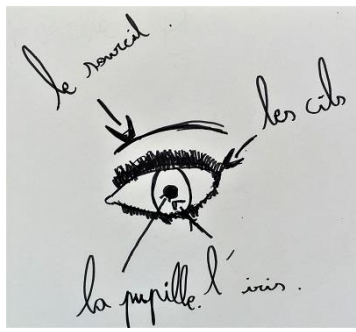 le sourcil.
les cils
la pupille.
l'iris.